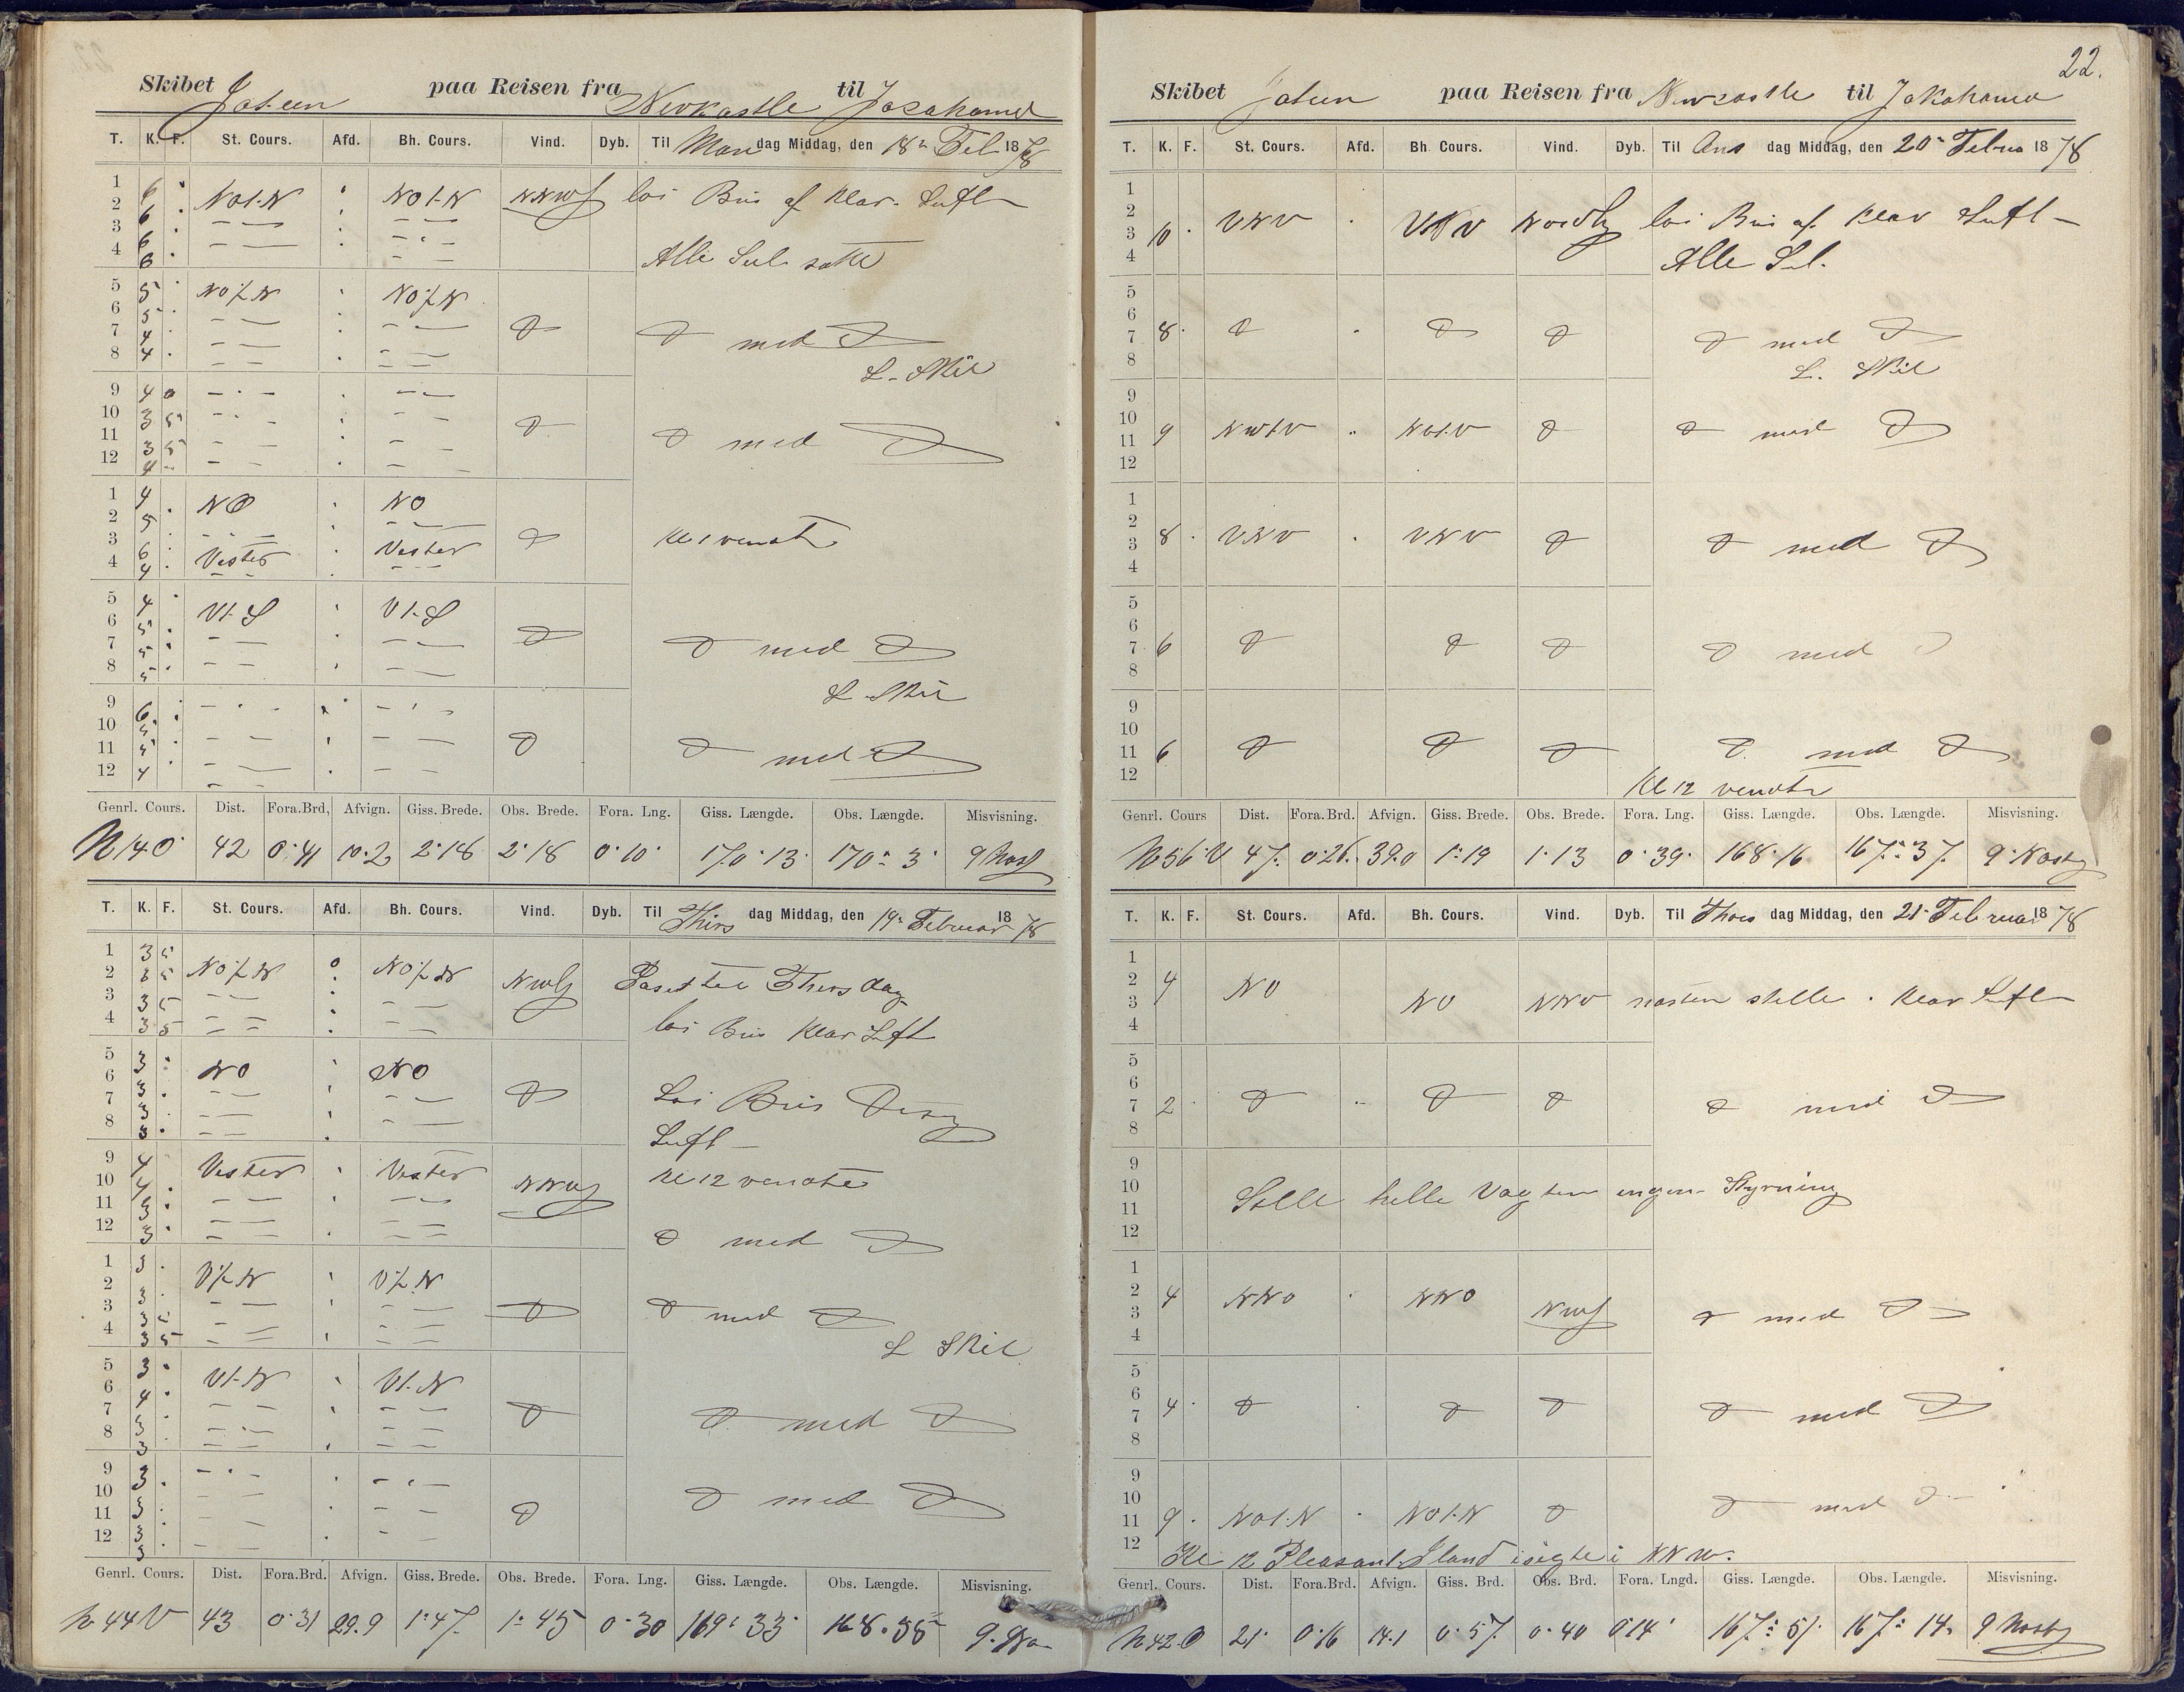 Skibet Joteen paa Reisen fra Newkastle til Jocahama
T. K. F. St. Cours. Afd. Bh. Cours. Vind. Dyb. Til Man dag Middag, den 18 Feb 1878
1 6 NOt.N NOt.N NNW loi Bris af klar Luft
2 6
3 6
4 6 Alle Seil satte
5 5 NO½N NO½N
6 5
7 4 D med D
8 4 L. Skil
9 4 0
10 3 5
11 3 5 D med D
12 4
1 4 NO NO
2 5
3 6 Kl 1 vendt
4 4 Vester Vester
5 4 Vt.S Vt.S
6 5
7 5 D med D
8 5 L. Skil
9 6
10 5
11 5 D med D
12 4
Genrl. Cours. Dist. Fora.Brd. Afvign. Giss. Brede. Obs. Brede. Fora. Lng. Giss. Længde. Obs. Længde. Misvisning.
N 14 O 42 0.41 10.2 2.18 2.18 0.10 170.13 170.3 9 Nostl
T. K. F. St. Cours. Afd. Bh. Cours. Vind. Dyb. Til Thirs dag Middag, den 19 Februar 1878
1 3 5
2 3 5 NO½N NO½N NW Paset til Thirsdag
3 3 5
4 3 5 loi Bris klar Luft
5 3
6 3 NO NO
7 3 Loi Bris
8 3 Luft
9 4 Vester Vester Kl 12 vendte
10 4 NNW
11 3
12 3 D med D
1 3 V½N V½N
2 3
3 3 5 D med D
4 3 5 L Skil
5 3 Vt.N Vt.N
6 4
7 3 D med D
8 3
9 3
10 3 D med D
11 3
12 3
Genrl. Cours. Dist. Fora.Brd. Afvign. Giss. Brede. Obs. Brede. Fora. Lng. Giss. Længde. Obs. Længde. Misvisning.
N 44 V 43 0.31 29.9 1.47 1.45 0.30 169.33 168.55 9.
22.
Skibet Joteen paa Reisen fra Newcastle til Jokohama
T. K. F. St. Cours. Afd. Bh. Cours. Vind. Dyb. Til Ons dag Middag, den 20 Februa 1878
1
2
3 10 VNV VNV loi Bris af klar Luft
4 Alle Seil.
5
6
7 8 D D D D med D
8 L. Skil
9
10
11 9 NWtV NWt.V D D med D
12
1
2
3 8 VNV VNV D D med D
4
5
6
7 6 D D D D med D
8
9
10
11 6 D D D D med D
12 Kl 12 vendte
Genrl. Cours Dist. Fora.Brd. Afvign. Giss. Brede. Obs. Brede. Fora. Lng. Giss. Længde. Obs. Længde. Misvisning.
N 56 V 47. 0.26. 39.0 1.19 1.13 0.39 168.16 167.37 9 Nostl
T. K. F. St. Cours. Afd. Bh. Cours. Vind. Dyb. Til Thors dag Middag, den 21 Februar 1878
1
2 4 NO NO NNV næsten stille. klar Luft
3
4
5
6
7 2 D D D D med D
8
9
10 Stille hele Vagten ingen Styrning
11
12
1
2 4 NNO NNO NW
3 D med D
4
5
6
7 4 D D D D med D
8
9
10
11 9 NOt.N NOt.N D D med D
12 Kl 12 Pleasant Iland i sigte i NNW.
Genrl. Cours. Dist. Fora.Brd. Afvign. Giss. Brd. Obs. Brd. Fora. Lngd. Giss. Længde. Obs. Længde. Misvisning.
N 42 O 21 0.16 14.1 0.57 0.40 0.14 167.51 167.14 9 Nostl